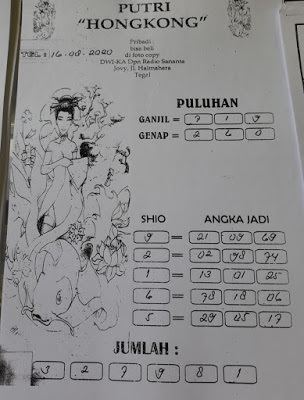 PUTRI
"HONGKONG"
Pribadi :
bisa beli
di foto copy
DWI-KA Dpn Radio Sananta
Jovy, Jl. Halmahera
Tegal
TGL : 16-08-2020
PULUHAN
GANJIL = 7 1 9
GENAP = 2 6 0
SHIO ANGKA JADI
9 = 21 09 69
2 = 02 98 74
1 = 13 01 25
6 = 78 18 06
5 = 29 05 17
JUMLAH :
3 2 7 9 8 1